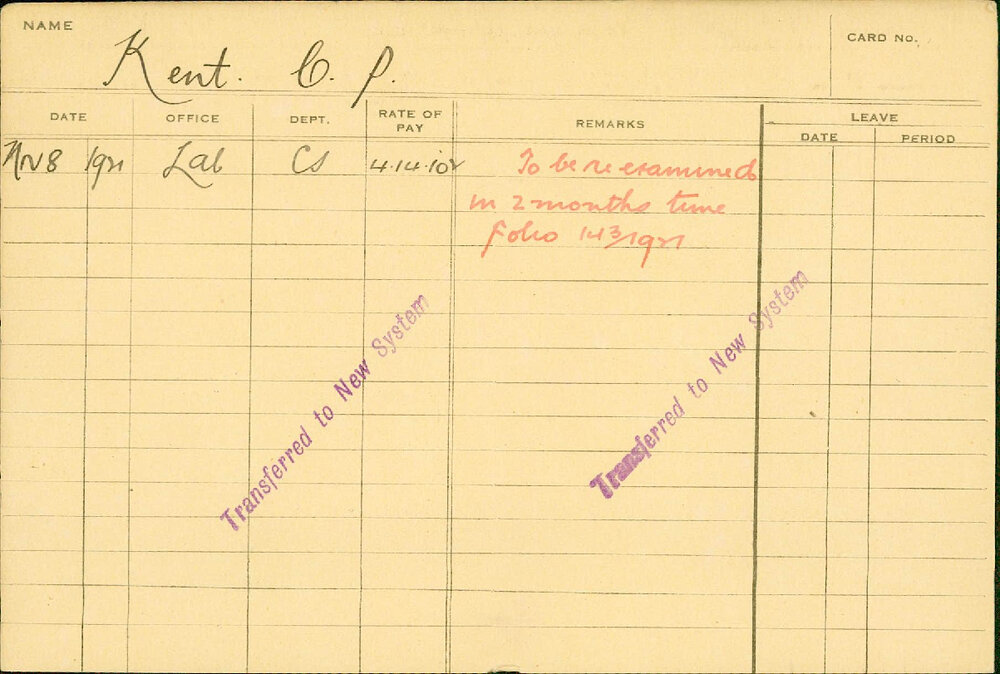 NAME
CARD No.
Kent. C. P.
DATE OFFICE DEPT. RATE OF PAY REMARKS LEAVE
DATE PERIOD
Nov 8 1921 Lab CS 4.14.10½ To be re examined
in 2 months time
Folio 143/1921
Transferred to New System
Transferred to New System